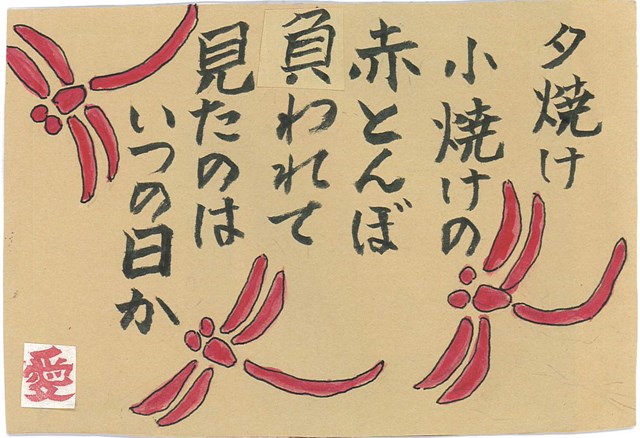 夕焼け
小焼けの
赤とんぼ
負われて
見たのは
いつの日か
愛